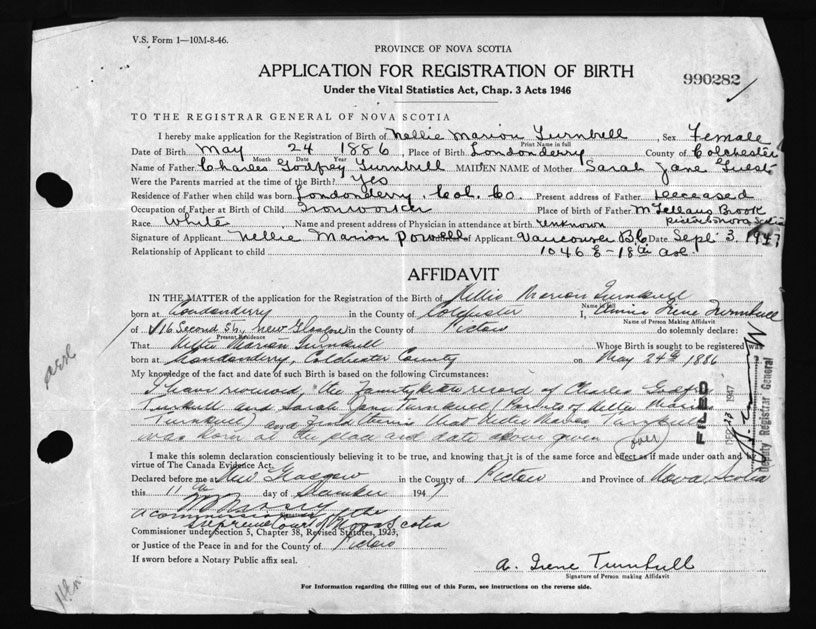 V.S. Form 1—10M-8-46.
PROVINCE OF NOVA SCOTIA
APPLICATION FOR REGISTRATION OF BIRTH
990282
Under the Vital Statistics Act, Chap. 3 Acts 1946
TO THE REGISTRAR GENERAL OF NOVA SCOTIA
I hereby make application for the Registration of Birth of Nellie Marion Turnbull, Sex Female
Print Name in full
Date of Birth May 24 1886, Place of Birth Londonderry County of Colchester
Month Date Year
Name of Father Charles Godfrey Turnbull MAIDEN NAME of Mother Sarah Jane Guest
Were the Parents married at the time of the Birth? Yes
Residence of Father when child was born Londonderry, Col. Co Present address of Father Deceased
Occupation of Father at Birth of Child Ironworker Place of birth of Father McLellans Brook
Pictou Nova Scotia
Race White, Name and present address of Physician in attendance at birth unknown
Signature of Applicant Nellie Marion Powell of Applicant Vancouver B.C Date Sept 3, 1947
Relationship of Applicant to child 1046 E - 18th ave
AFFIDAVIT
IN THE MATTER of the application for the Registration of Birth of Nellie Marion Turnbull
Name in full
born at Londonderry in the County of Colchester I, Annie Irene Turnbull
Name of Person Making Affidavit
of 816 Second St., New Glasgow in the County of Pictou do solemnly declare:
Present Residence
That Nellie Marion Turnbull Whose Birth is sought to be registered was
born at Londonderry, Colchester County on May 24th 1886
My knowledge of the fact and date of such Birth is based on the following Circumstances:
I have reviewed the family record of Charles Godfrey
Turnbull and Sarah Jane Turnbull (Parents of Nellie Marion
Turnbull) and find therein that Nellie Marion Turnbull
was born at the place and date above given
FILED
1947
Deputy Registrar General
I make this solemn declaration conscientiously believing it to be true, and knowing that it is of the same force and effect as if made under oath and by
virtue of The Canada Evidence Act.
Declared before me at New Glasgow in the County of Pictou and Province of Nova Scotia
this 11th day of September 1947
A commissioner of the
Supreme Court of Nova Scotia
Commissioner under Section 5, Chapter 38, Revised Statutes, 1923,
or Justice of the Peace in and for the County of Pictou
If sworn before a Notary Public affix seal.
A. Irene Turnbull
Signature of Person making Affidavit
For Information regarding the filling out of this Form, see instructions on the reverse side.